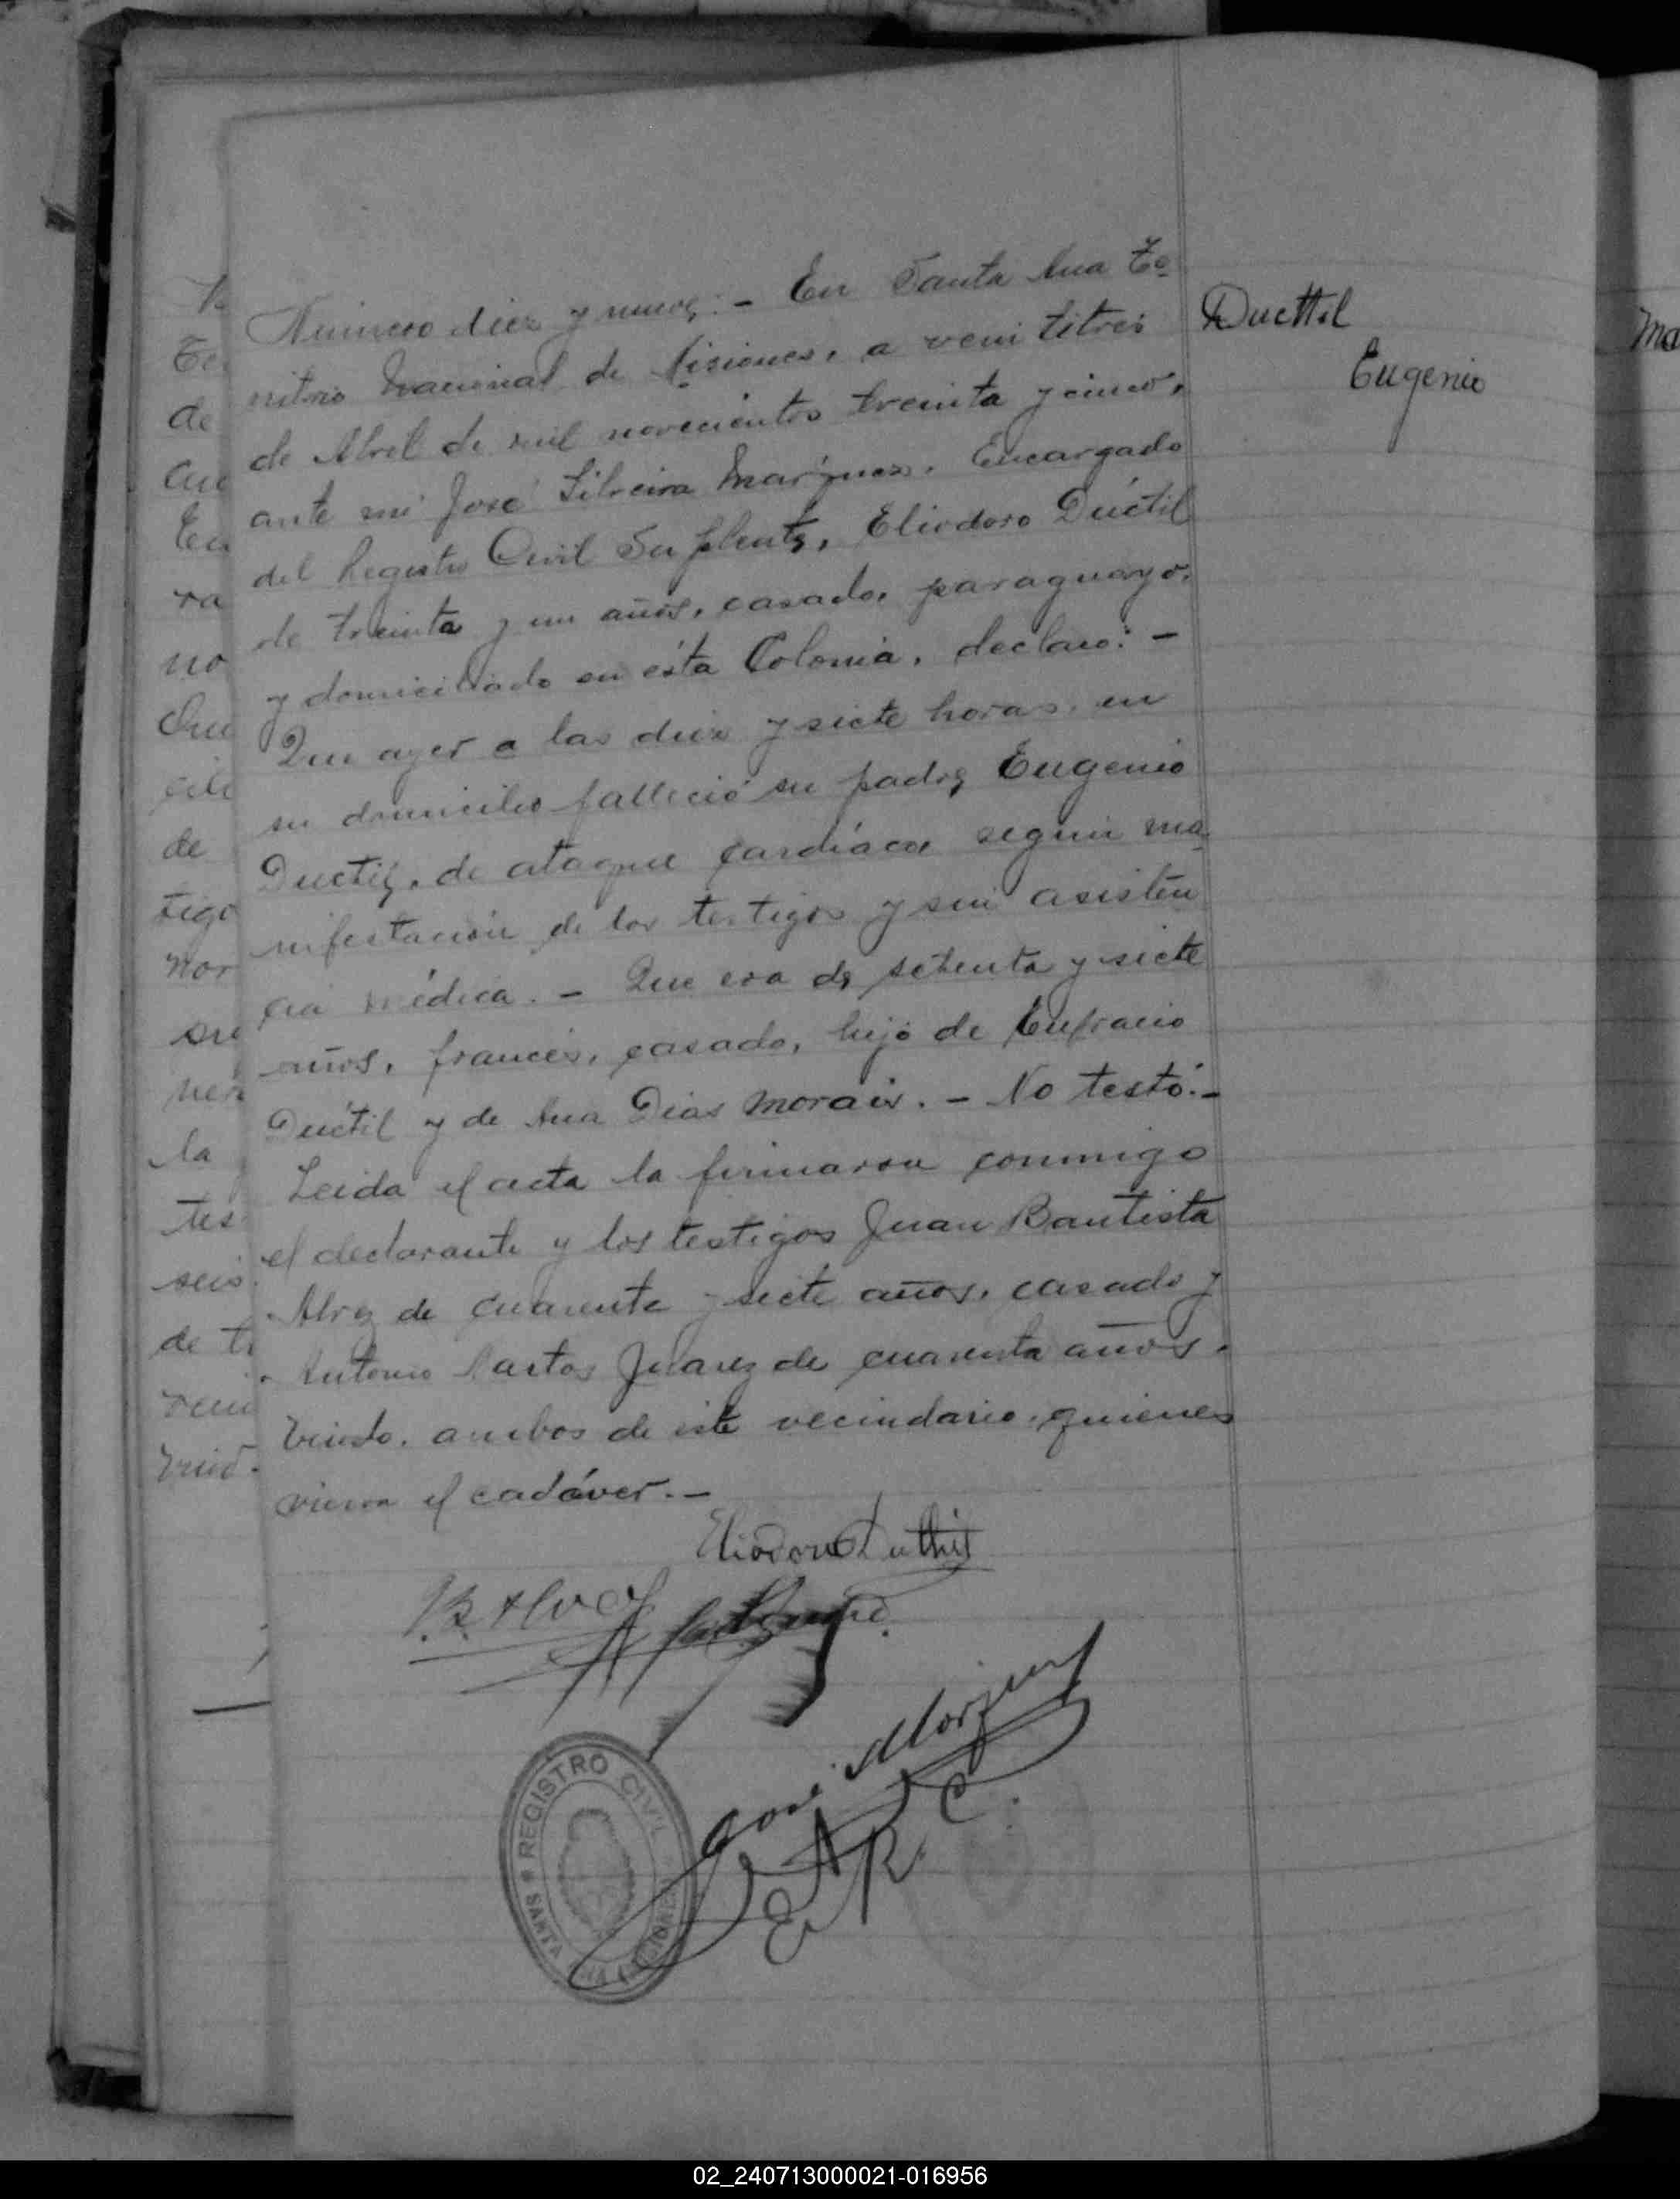 Ducttil
Eugenio
Número diez y nueve:- En Santa Ana Te-
rritorio Nacional de Misiones, a veintitres
de Abril de mil novecientos treinta y cinco,
ante mi José Silveira Marquez, Encargado
del Registro Civil Suplente, Eliodoro Dúctil
de treinta y un años, casado, paraguayo,
y domiciliado en ésta Colonia, declaró:-
Que ayer a las diez y siete horas, en
su domicilio falleció su padre Eugenio
Ductil, de ataque cardíaco, según ma-
nifestación de los testigos y sin asisten
cia médica.- Que era de setenta y siete
años, francés, casado, hijo de Eufracio
Dúctil y de Ana Dias Morais.- No testó:-
Leida el acta la firmaron conmigo
el declarante y los testigos Juan Bautista
Alvez de cuarenta y siete años, casado y
Antonio Santos Juarez de cuarenta años,
viudo, ambos de este vecindario, quienes
vieron el cadáver.-
Eliodoro Duthil
J.B. Alvez
José Marquez
E. R. C.
REGISTRO CIVIL
SANTA ANA (MISIONES)
02_240713000021-016956